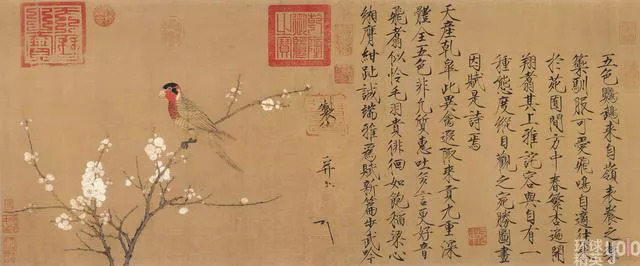 五色鸚鵡來自嶺表養之禁
籞馴服可愛飛鳴自適往來
於苑囿間方中春繁杏遍開
翔翥其上雅詫容與自有一
種態度縱目觀之宛勝圖畫
因賦是詩焉
天產乾皋此異禽遐陬來貢九重深
體全五色非凡質惠吐多言更好音
飛翥似憐毛羽貴徘徊如飽稻粱心
緗膺紺趾誠端雅為賦新篇步武吟
製
并
环球
精英
yolo